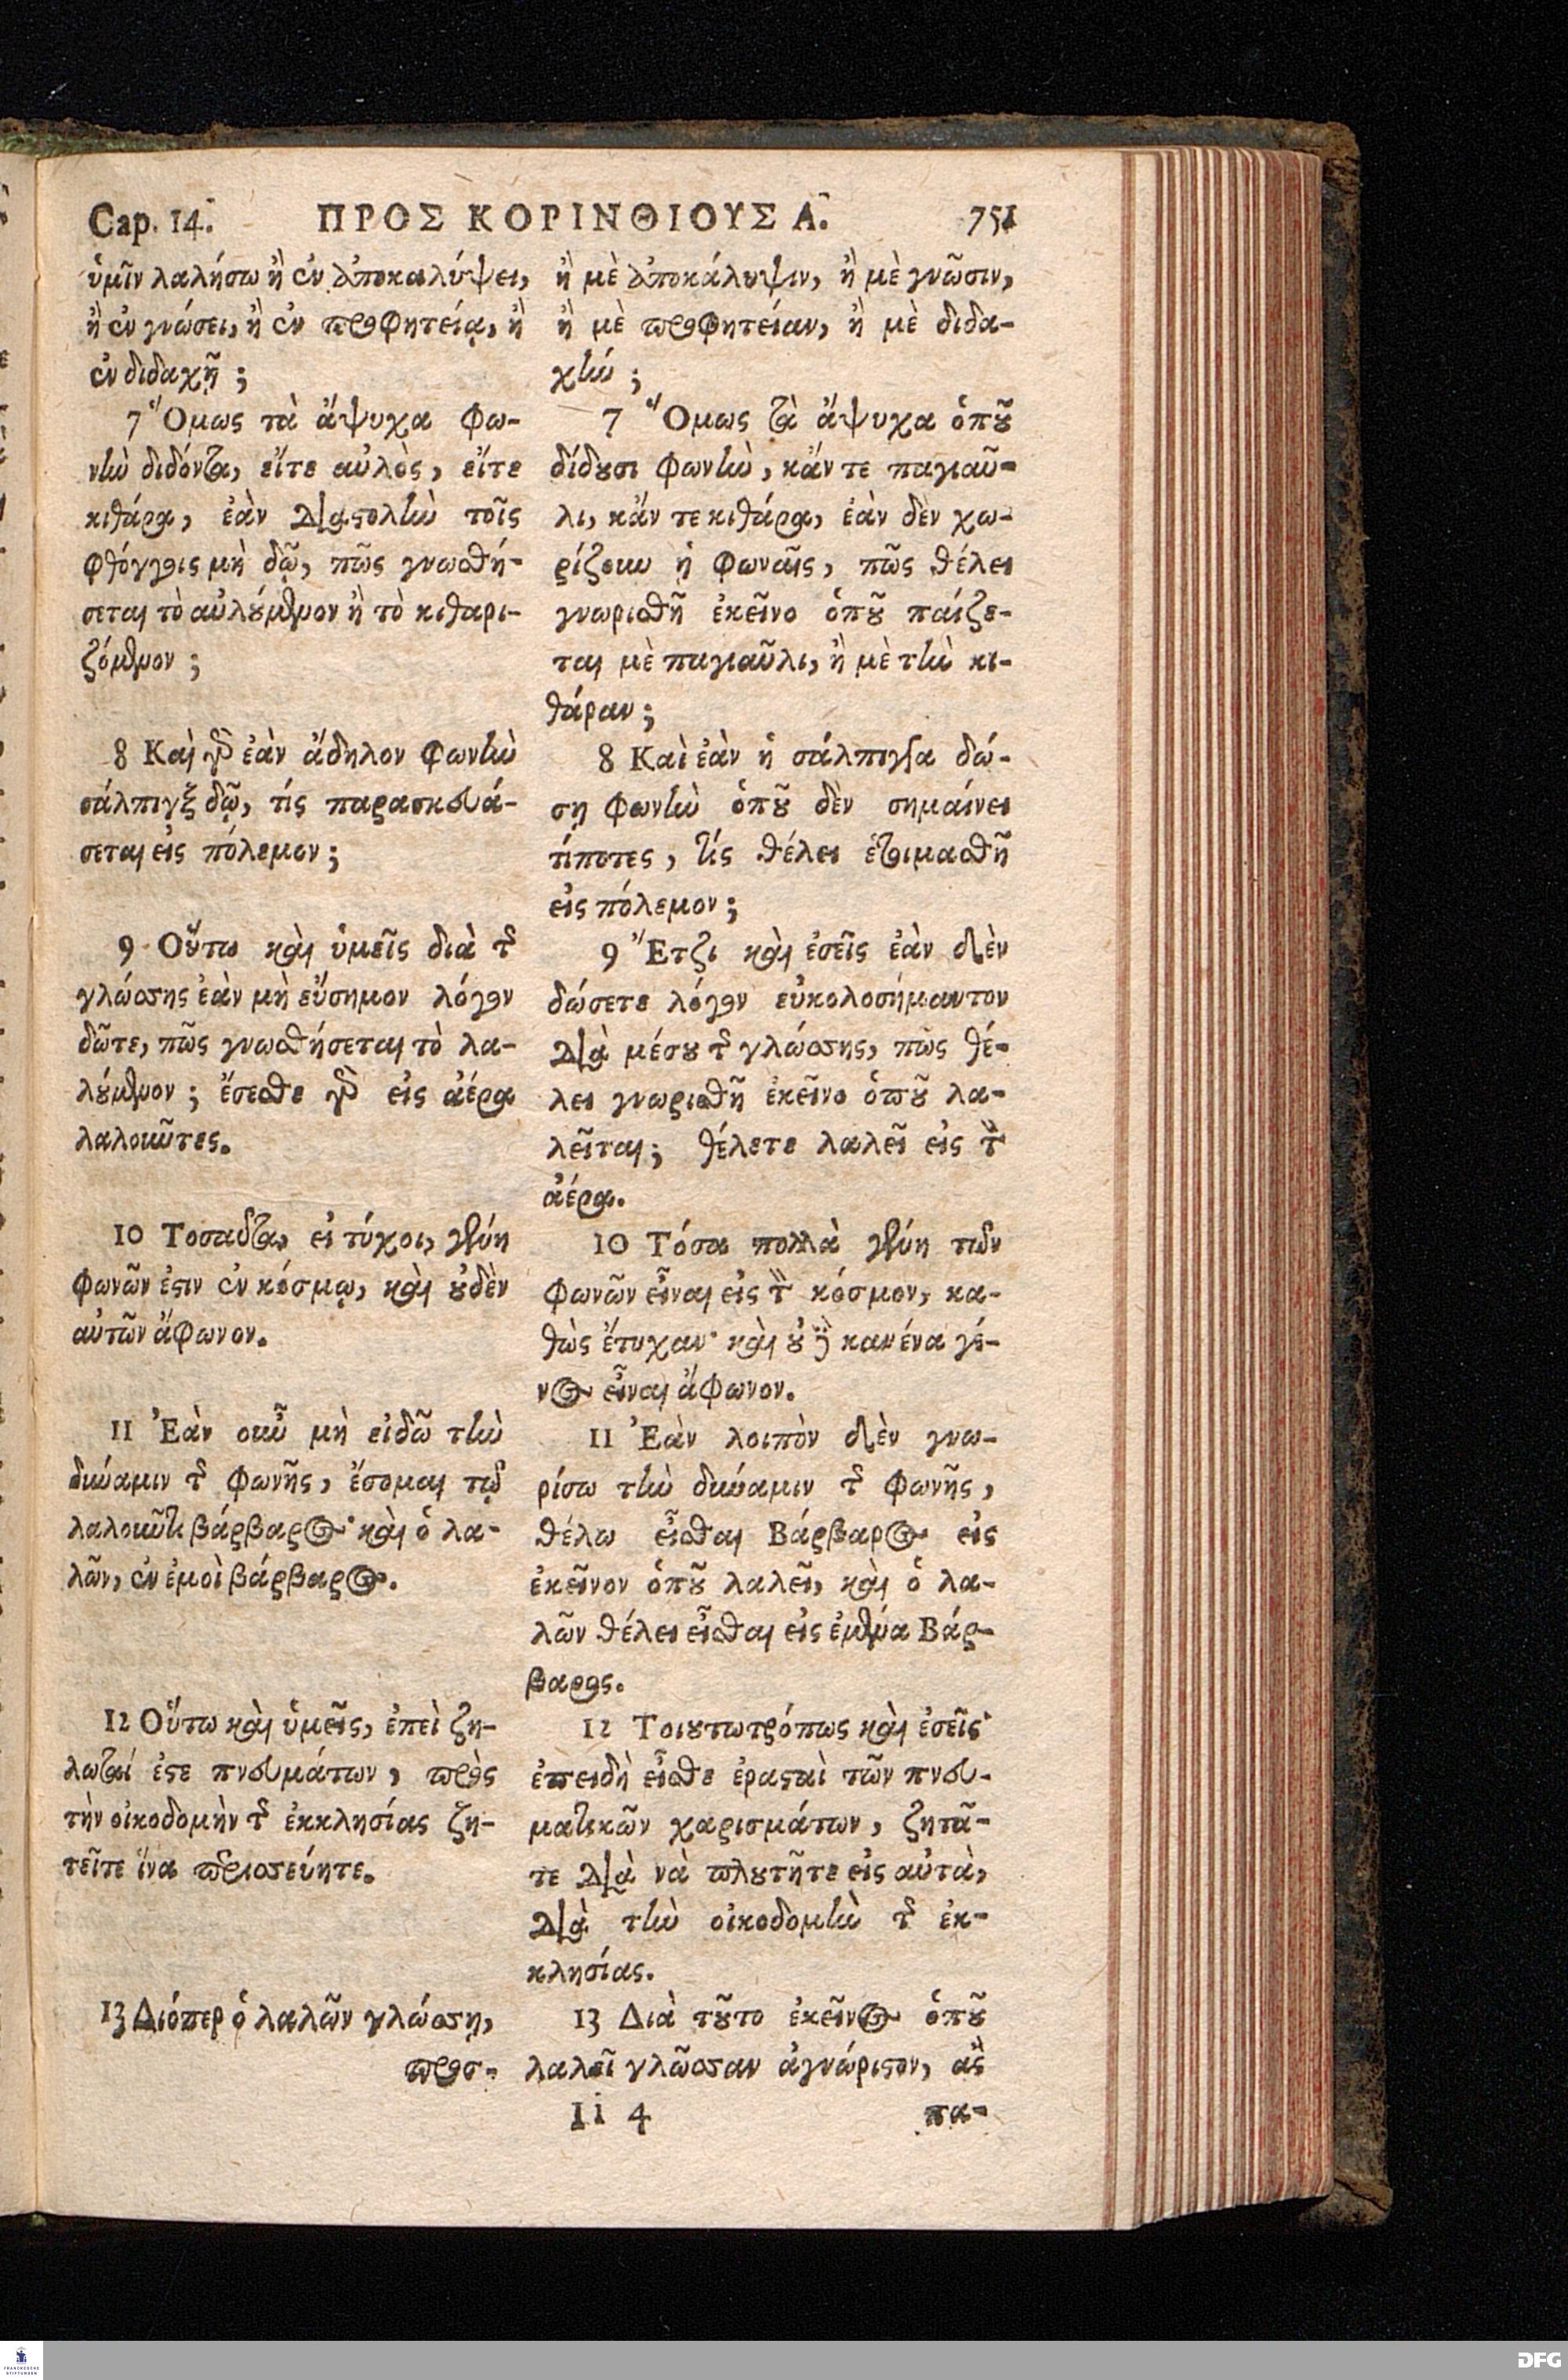 Cap. 14. ΠΡΟΣ ΚΟΡΙΝΘΙΟΥΣ Α. 751
ὑμῖν λαλήσω ἢ ἐν ἀποκαλύψει,
ἢ ἐν γνώσει, ἢ ἐν προφητείᾳ, ἢ
ἐν διδαχῇ ;
7 Ὅμως τὰ ἄψυχα φω-
νὴν διδόντα, εἴτε αὐλὸς, εἴτε
κιθάρα, ἐὰν διαστολὴν τοῖς
φθόγγοις μὴ δῷ, πῶς γνωσθή-
σεται τὸ αὐλούμενον ἢ τὸ κιθαρι-
ζόμενον ;
8 Καὶ γὰρ ἐὰν ἄδηλον φωνὴν
σάλπιγξ δῷ, τίς παρασκευά-
σεται εἰς πόλεμον ;
9 Οὕτω καὶ ὑμεῖς διὰ τῆς
γλώσσης ἐὰν μὴ εὔσημον λόγον
δῶτε, πῶς γνωσθήσεται τὸ λα-
λούμενον ; ἔσεσθε γὰρ εἰς ἀέρα
λαλοῦντες.
10 Τοσαῦτα, εἰ τύχοι, γένη
φωνῶν ἐστιν ἐν κόσμῳ, καὶ οὐδὲν
αὐτῶν ἄφωνον.
11 Ἐὰν οὖν μὴ εἰδῶ τὴν
δύναμιν τῆς φωνῆς, ἔσομαι τῷ
λαλοῦντι βάρβαρος· καὶ ὁ λα-
λῶν, ἐν ἐμοὶ βάρβαρος.
12 Οὕτω καὶ ὑμεῖς, ἐπεὶ ζη-
λωταί ἐστε πνευμάτων, πρὸς
τὴν οἰκοδομὴν τῆς ἐκκλησίας ζη-
τεῖτε ἵνα περισσεύητε.
13 Διόπερ ὁ λαλῶν γλώσσῃ,
προσ-
ἢ μὲ ἀποκάλυψιν, ἢ μὲ γνῶσιν,
ἢ μὲ προφητείαν, ἢ μὲ διδα-
χήν ;
7 Ὅμως τὰ ἄψυχα ὁποῦ
δίδουσι φωνὴν, κἄν τε παγιαῦ-
λι, κἄν τε κιθάρα, ἐὰν δὲν χω-
ρίζουν ᾑ φωναῖς, πῶς θέλει
γνωρισθῆ ἐκεῖνο ὁποῦ παίζε-
ται μὲ παγιαῦλι, ἢ μὲ τὴν κι-
θάραν ;
8 Καὶ ἐὰν ἡ σάλπιγγα δώ-
σῃ φωνὴν ὁποῦ δὲν σημαίνει
τίποτες, τίς θέλει ἑτοιμασθῆ
εἰς πόλεμον ;
9 Ἔτζι καὶ ἐσεῖς ἐὰν δὲν
δώσετε λόγον εὐκολοσήμαντον
διὰ μέσου τῆς γλώσσης, πῶς θέ-
λει γνωρισθῆ ἐκεῖνο ὁποῦ λα-
λεῖται ; θέλετε λαλεῖ εἰς τὸν
ἀέρα.
10 Τόσα πολλὰ γένη τῶν
φωνῶν εἶναι εἰς τὸν κόσμον, κα-
θὼς ἔτυχαν· καὶ οὐδὲ κανένα γέ-
νος εἶναι ἄφωνον.
11 Ἐὰν λοιπὸν δὲν γνω-
ρίσω τὴν δύναμιν τῆς φωνῆς,
θέλω εἶσθαι Βάρβαρος εἰς
ἐκεῖνον ὁποῦ λαλεῖ, καὶ ὁ λα-
λῶν θέλει εἶσθαι εἰς ἐμένα Βάρ-
βαρος.
12 Τοιουτωτρόπως καὶ ἐσεῖς·
ἐπειδὴ εἶσθε ἐρασταὶ τῶν πνευ-
ματικῶν χαρισμάτων, ζητᾶ-
τε διὰ νὰ πλουτῆτε εἰς αὐτὰ,
διὰ τὴν οἰκοδομὴν τῆς ἐκ-
κλησίας.
13 Διὰ τοῦτο ἐκεῖνος ὁποῦ
λαλεῖ γλῶσσαν ἀγνώριστον, ἂς
Ii 4 πα-
FRANCKESCHE STIFTUNGEN
DFG